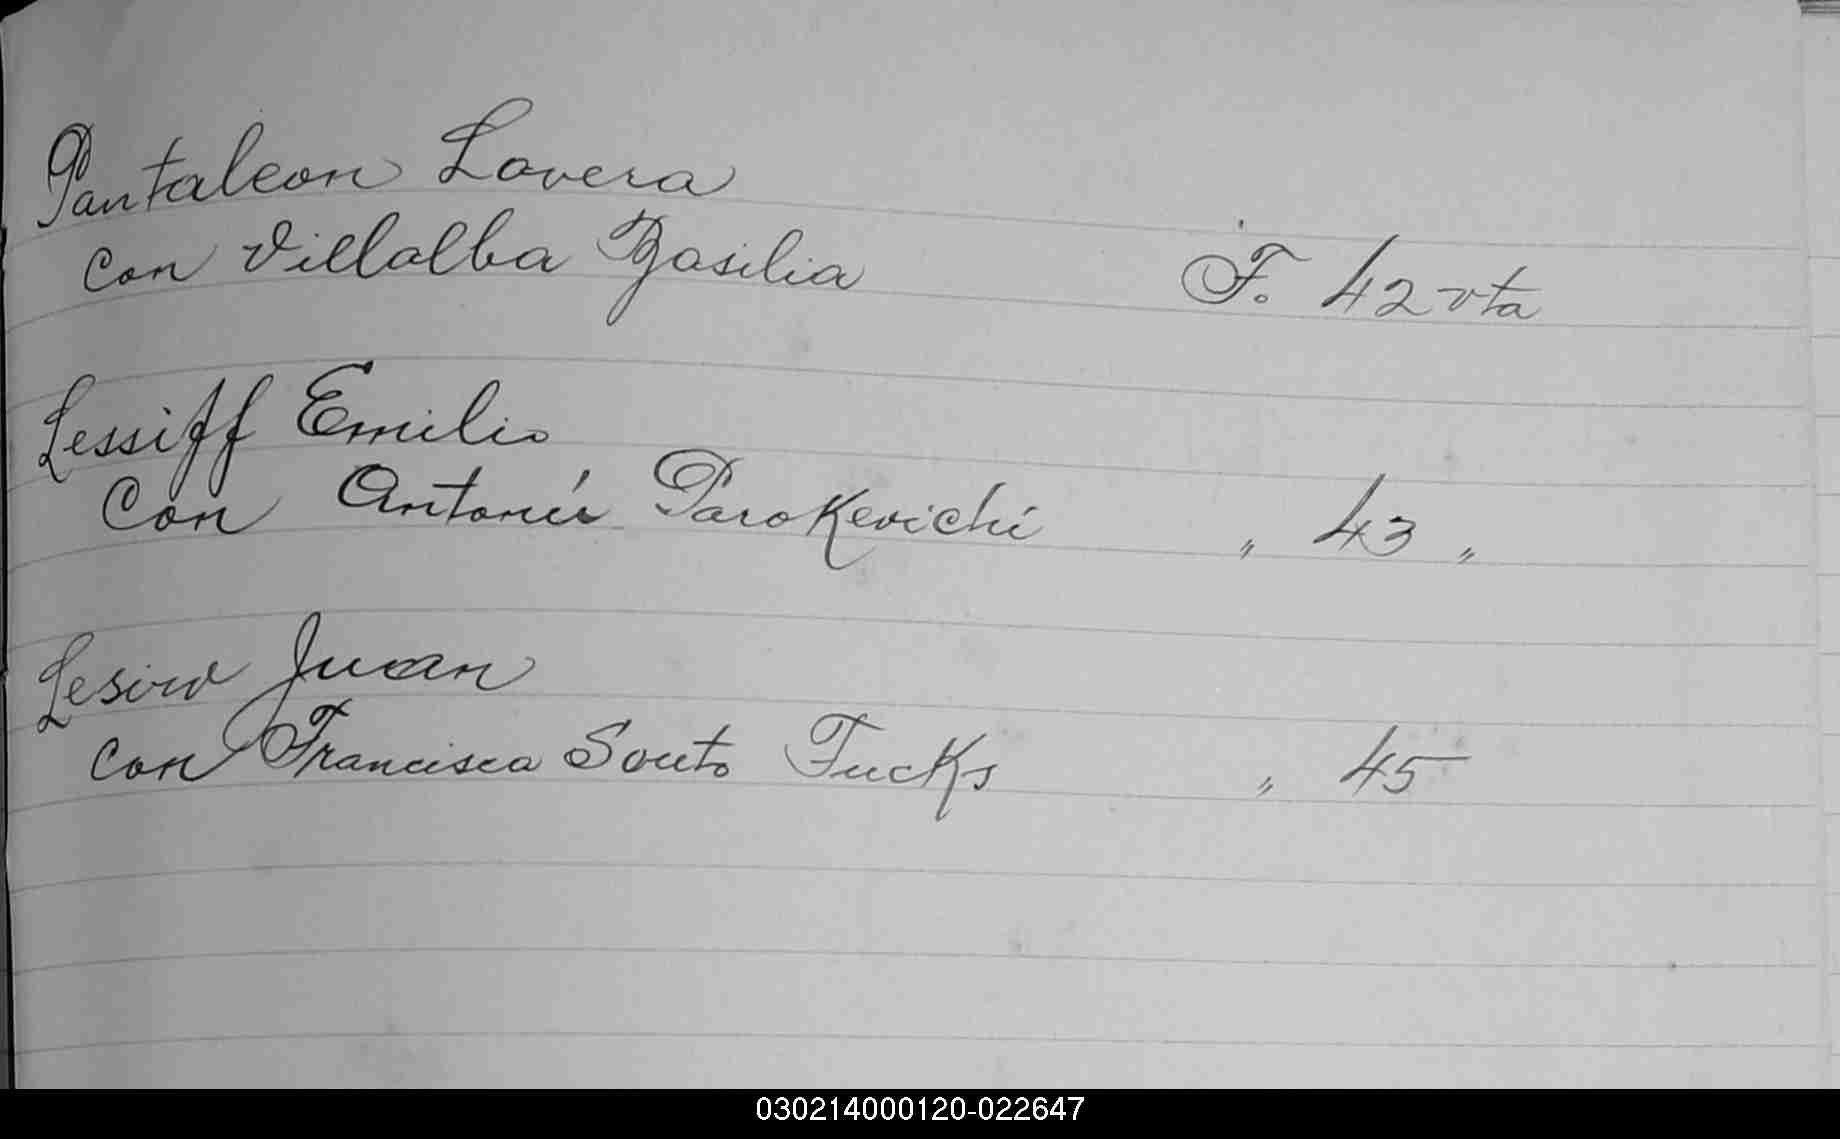 Pantaleon Lovera
con Villalba Basilia F. 42 vta
Lessiff Emilio
Con Antonia Parokevichi " 43 "
Lesiw Juan
con Francisca Souto Fucks " 45
030214000120-022647